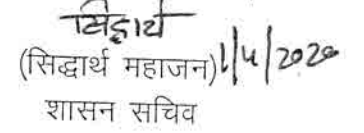 सिद्धार्थ
(सिद्धार्थ महाजन) 1/4/2020
शासन सचिव